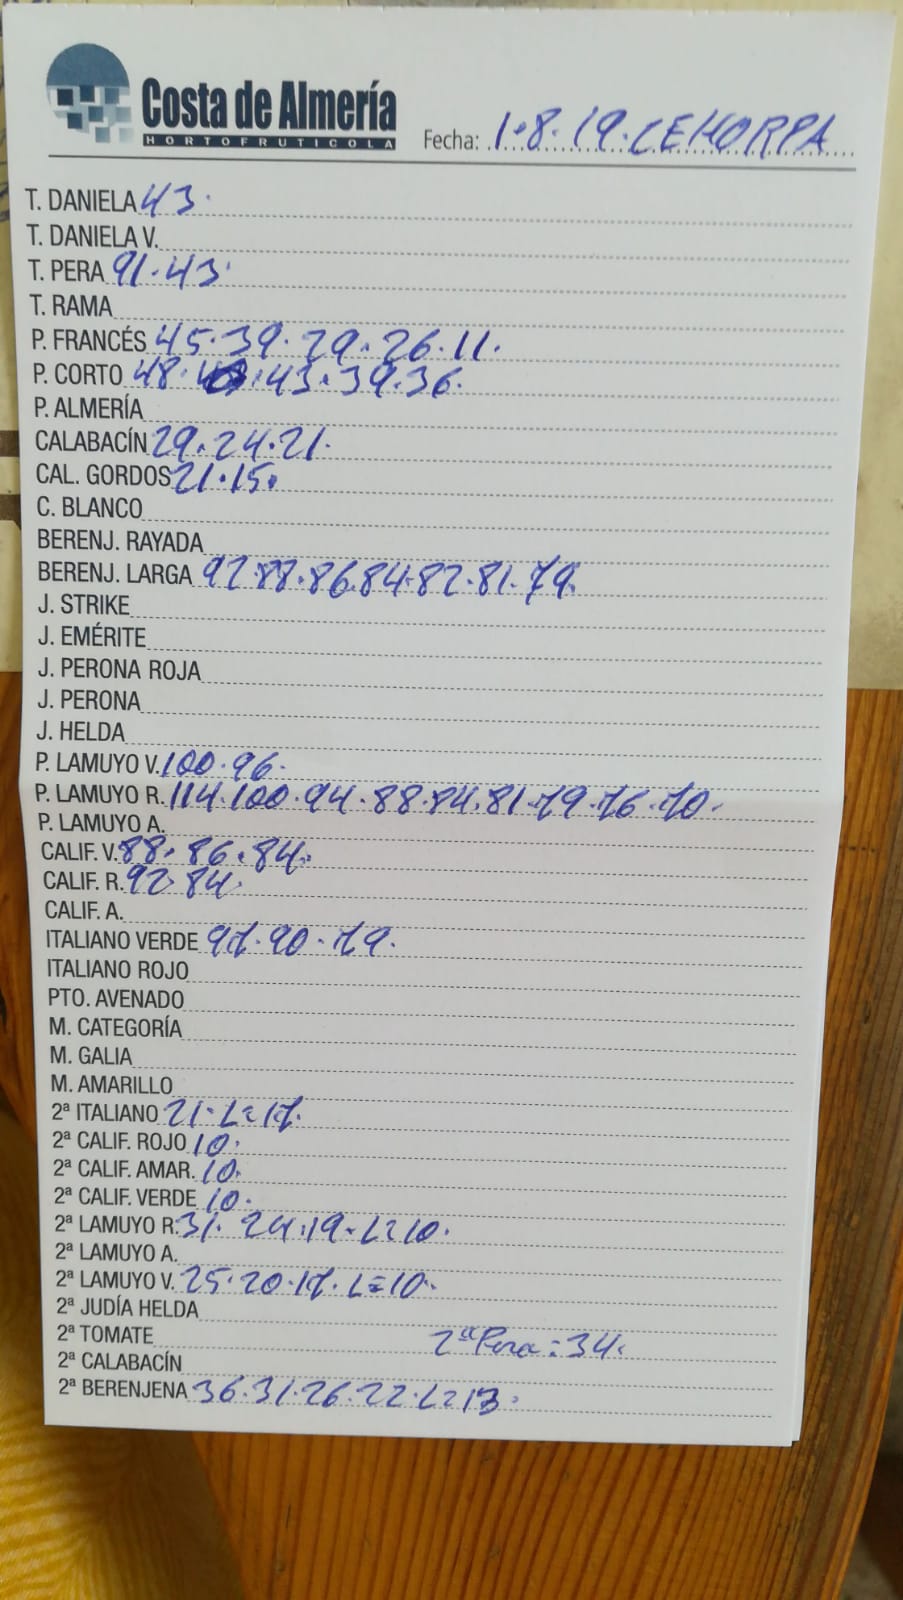 Costa de Almería
HORTOFRUTICOLA
Fecha: 1.8.19. CEHORPA
T. DANIELA 43.
T. DANIELA V.
T. PERA 91.43.
T. RAMA
P. FRANCÉS 45.39.29.26.11.
P. CORTO 48. 43.39.36.
P. ALMERÍA
CALABACÍN 29.24.21.
CAL. GORDOS 21.15.
C. BLANCO
BERENJ. RAYADA
BERENJ. LARGA 92.88.86.84.82.81.79.
J. STRIKE
J. EMÉRITE
J. PERONA ROJA
J. PERONA
J. HELDA
P. LAMUYO V. 100.96.
P. LAMUYO R. 114.100.94.88.84.81.79.76.70.
P. LAMUYO A.
CALIF. V. 88.86.84.
CALIF. R. 92.84.
CALIF. A.
ITALIANO VERDE 97.90.79.
ITALIANO ROJO
PTO. AVENADO
M. CATEGORÍA
M. GALIA
M. AMARILLO
2ª ITALIANO 21.L=17.
2ª CALIF. ROJO 10.
2ª CALIF. AMAR. 10.
2ª CALIF. VERDE 10.
2ª LAMUYO R. 31.24.19.L=10.
2ª LAMUYO A.
2ª LAMUYO V. 25.20.17.L=10.
2ª JUDÍA HELDA
2ª TOMATE 2ª Pera=34.
2ª CALABACÍN
2ª BERENJENA 36.31.26.22.L=13.